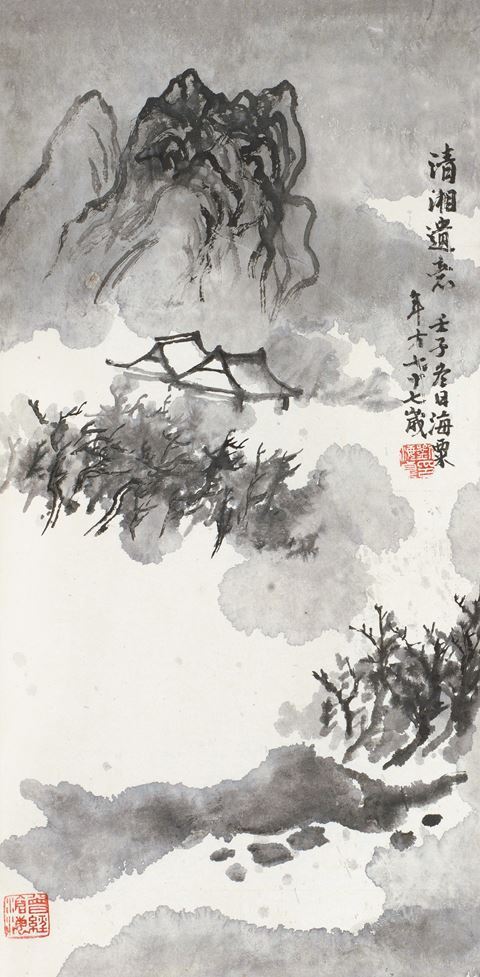 清湘遺意 壬子冬日海粟
年方七十七歲
曾經滄海